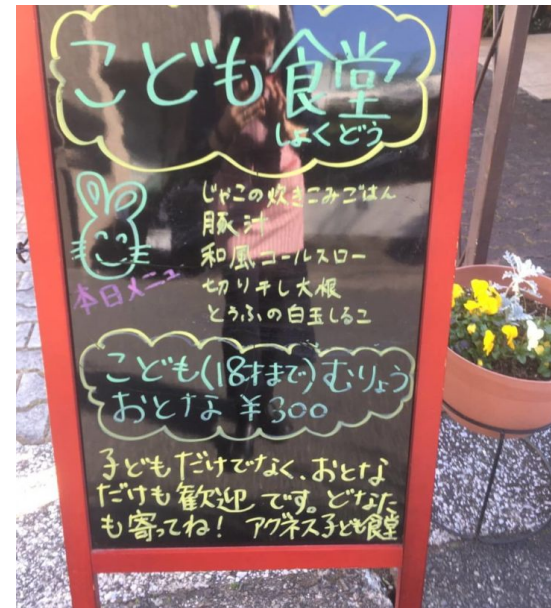 こども食堂
しょくどう
じゃこの炊きこみごはん
豚汁
和風コールスロー
切り干し大根
とうふの白玉しるこ
本日メニュー
こども(18才まで)むりょう
おとな ¥300
子どもだけでなく、おとな
だけも歓迎です。どなた
も寄ってね! アグネス子ども食堂